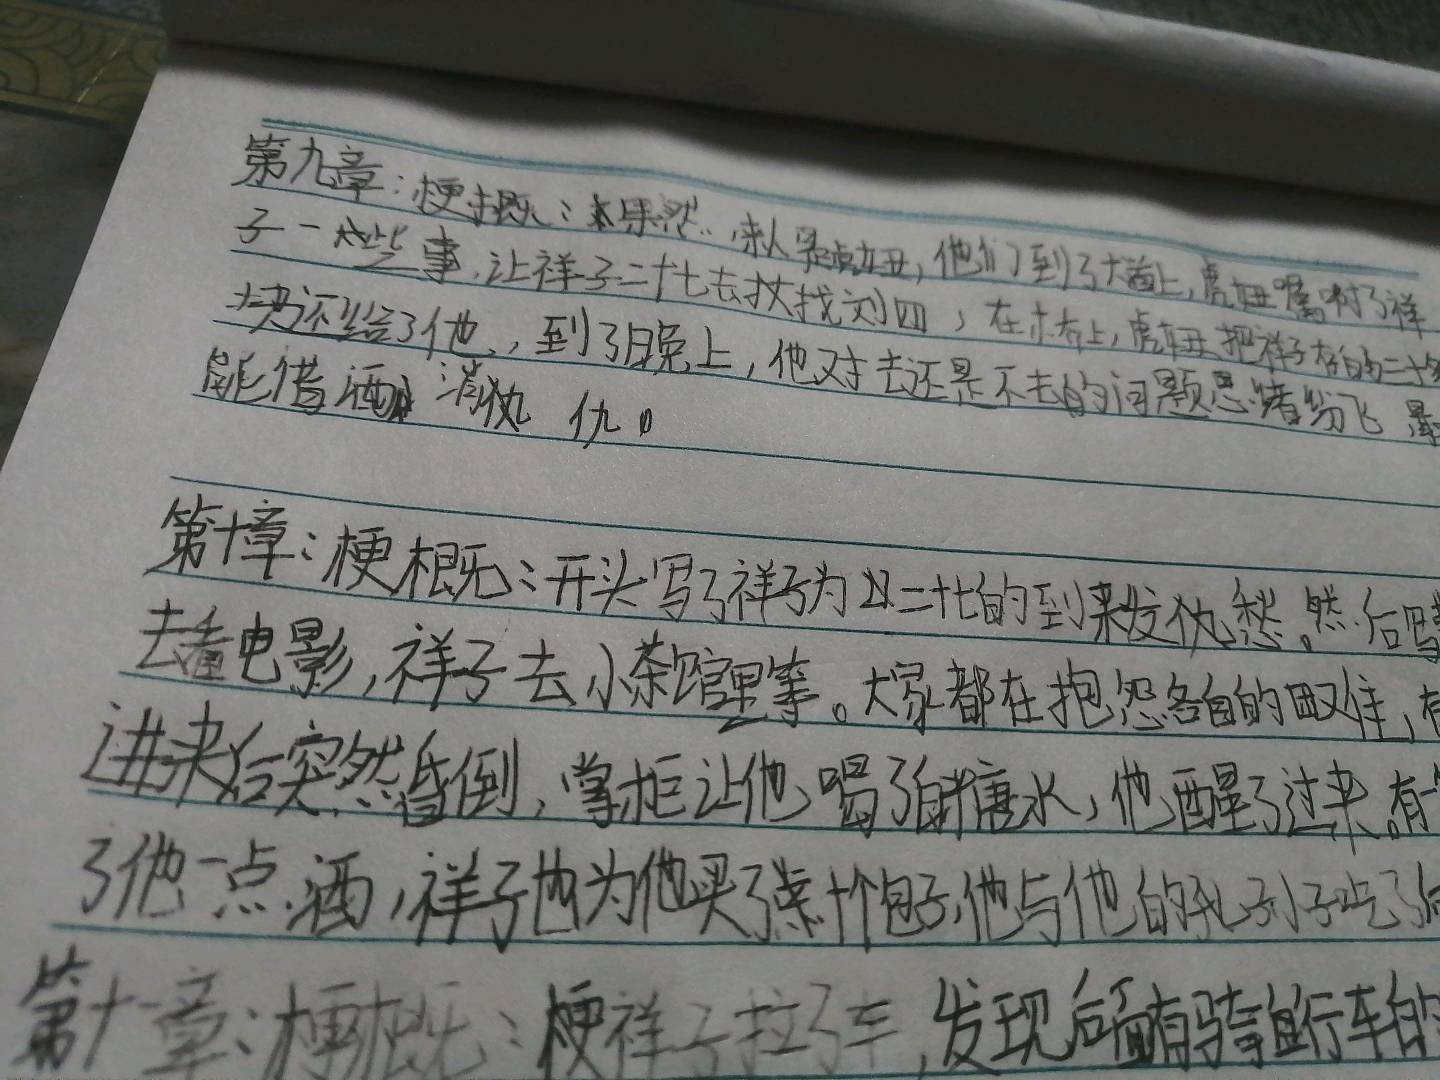 第九章：梗概：果然，来人是虎妞，他们到了大街上，虎妞嘱咐了祥
子一些事，让祥子二十七去找刘四，在桥上，虎妞把祥子存的三十多
块还给了他，到了晚上，他对去还是不去的问题思绪纷飞 最
能借酒消仇。
第十章：梗概：开头写了祥子为二十七的到来发愁。然后写
去看电影，祥子去小茶馆里等。大家都在抱怨各自的困难，有
进来后突然昏倒，掌柜让他喝了白糖水，他醒了过来。有一
了他一点酒，祥子也为他买了十个包子，他与他的孙子小子吃了
第十一章：梗概：祥子拉了车，发现后面有骑自行车的